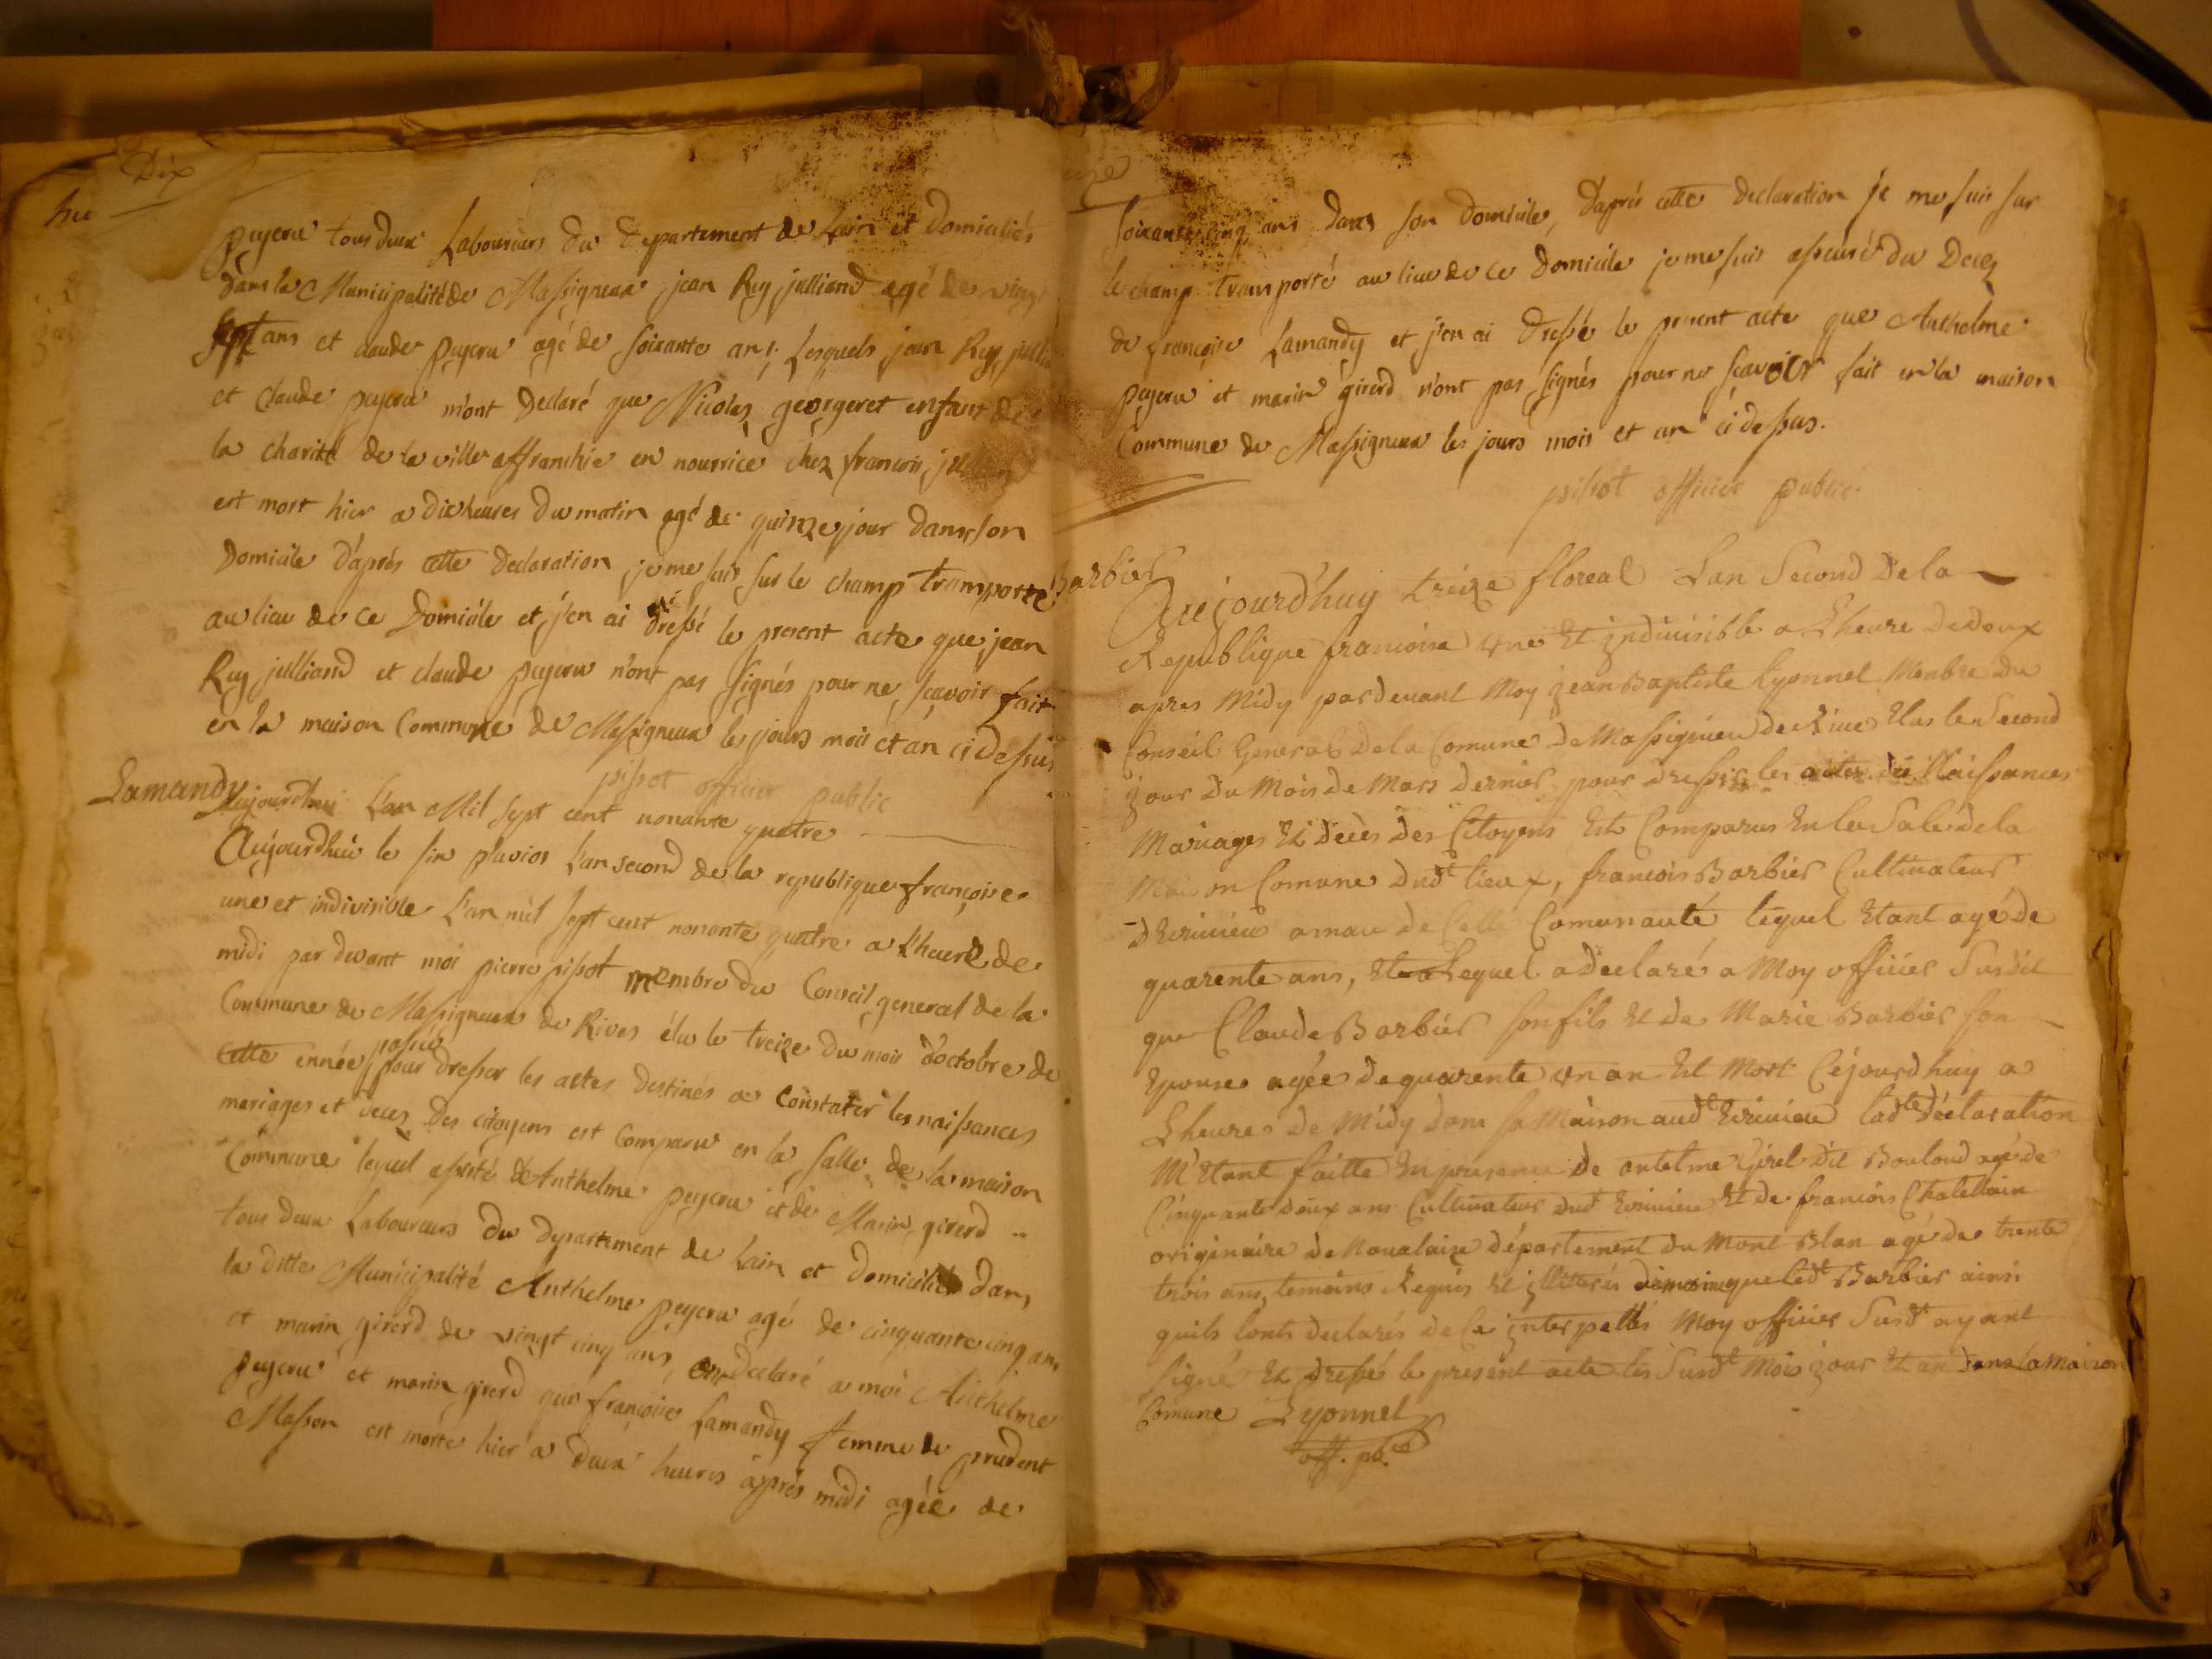 Dix
peyeru tous deux Laboureurs du Departement de Lain et domiciliés
dans la Municipalité de Massigneux, jean Rey julliand agé de vingt
sept ans et claude peyeru agé de soixante ans. Lesquels jean Rey
et claude peyeru m'ont declaré que Nicolas georgeret enfant de
la charité de la ville affranchie en nourrice chez françois
est mort hier a dix heures du matin agé de quinze jour dans son
Domicile d'aprés cette declaration je me suis sur le champ transporté
au lieu de ce Domicile et j'en ai dressé le present acte que jean
Rey julliand et claude peyeru n'ont pas signés pour ne sçavoir fait
en la maison Commune de Massigneux les jours mois et an ci dessus
pissot officier public
Lamandy
aujourdhui Lan Mil sept cent nonante quatre
Aujourdhui le six pluvios Lan second de la republique françoise
une et indivisible L'an mil sept cent nonante quatre a L'heure de
midi par devant moi pierre pissot membre du Conseil general de la
Commune de Massigneux de Rives élu le treize du mois d'octobre de
passé
cette année pour dresser les actes destinés a constater les naissances
mariages et deces des citoyens est comparu en la salle de la maison
Commune lequel assisté d'Anthelme peyeru et de Marin girerd
tous deux Laboureurs du departement de Lain et domiciliés dans
la ditte Municipalité Anthelme peyeru agé de cinquante cinq ans
et marin girerd de vingt cinq ans, declaré a moi Anthelme
peyeru et marin girerd que françoise Lamandy femme de prudent
Masson est morte hier a deux heures aprés midi agée de
soixante cinq ans dans son domicile, D'aprés cette declaration je me suis sur
le champ transporté au lieu de ce domicile je me suis assuré du Deces
de françoise Lamandy et j'en ai dressé le present acte que Anthelme
peyeru et marin girerd n'ont pas signés pour ne sçavoir fait en la maison
Commune de Massigneux les jours mois et an ci dessus.
pissot officier public
Barbier
Aujourd'huy treize floreal Lan Second De la
Republique francoise une Et indivisible a Lheure de deux
apres Midy pardevant Moy Jean Baptiste Lyonnel Membre du
Conseil General De la Comune De Massignieu de Rive Elus le Second
jour Du Mois De Mars Dernier pour dresser les actes de Naissances
Mariages Et Décès Des Citoyens Est Comparus En la Sale de la
Maison Comune Dudt lieux, francois Barbier Cultivateur
amau de Cette Comunauté lequel Etant agé de
quarente ans, Lequel a declaré a Moy officier Susdit
que Claude Barbier son fils Et de Marie Barbier son
Epouse agée de quarente un an Est Mort Cejourdhuy a
Lheure De Midy dans sa Maison audt ladte déclaration
M'Etant faitte En presence de antelme Girel dit Bouloud agé de
Cinquante deux ans Cultivateur dudt Et de francois Chatellain
originaire de Novalaize département du Mont Blan agé de trente
trois ans, temoins Requis Et illiterés queledt Barbier ainsi
quils lonts declarés de Ce interpellés Moy officier Susdt ayant
signé Et dressé le present acte les Susdt Mois jour Et an dans la Maison
Comune Lyonnel
off. pb.